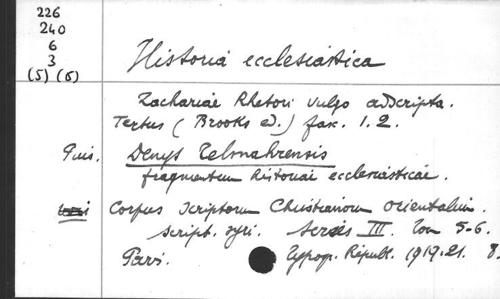 226
240
6
3
(5) (6)
Historia ecclesiastica
Zachariae Rhetori vulgo adscripta.
Textus (Brooks ed.) fasc. 1. 2.
Denys Telmahrensis
fragmentum historiae ecclesiasticae.
Corpus Scriptorum Christianorum orientalium.
script. syri. Series III. Tom 5-6.
Paris. Typogr. Républ. 1919-21. 8.